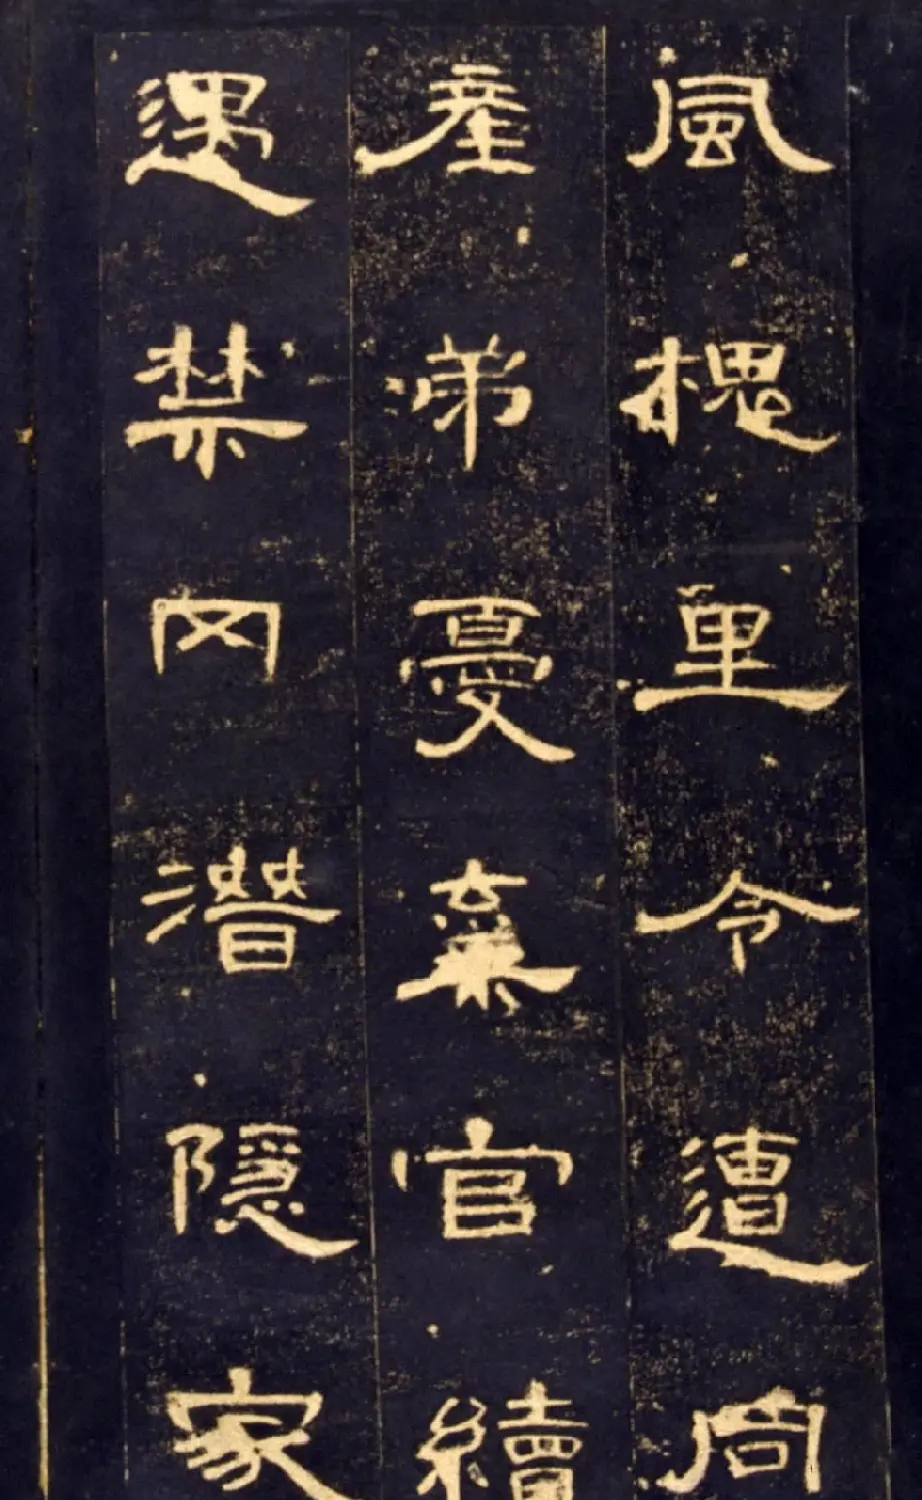 風槐里令遭同
產弟憂棄官續
遇禁网潛隱家